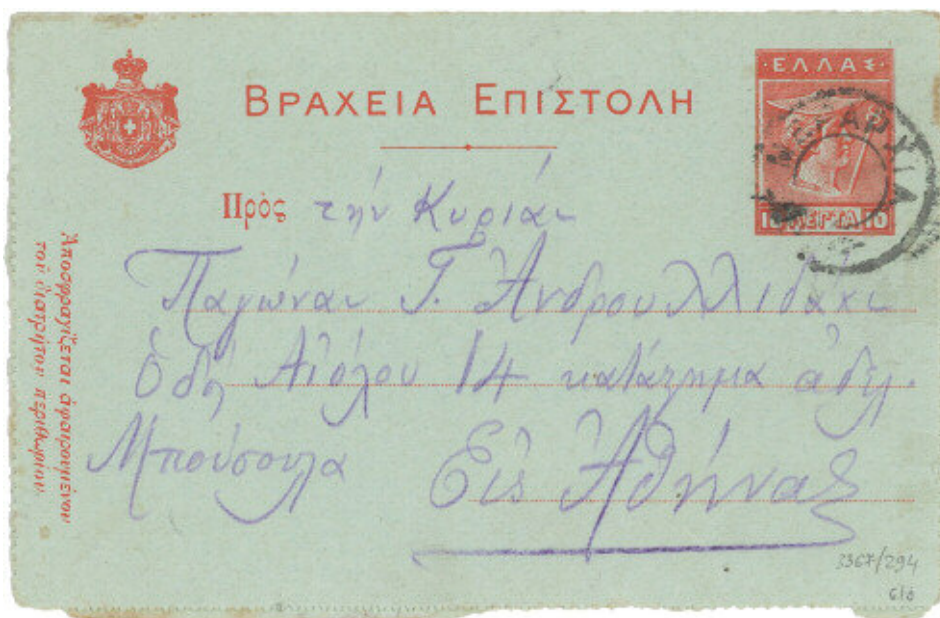 ΒΡΑΧΕΙΑ ΕΠΙΣΤΟΛΗ
ΕΛΛΑΣ
10 ΛΕΠΤΑ 10
Πρὸς τήν Κυρίαν
Παγώναν Γ. Ἀνδρουλλιδάκι
Ὁδὸς Αἰόλου 14 κατάστημα ἀδελ.
Μπούσουλα Εἰς Ἀθήνας
Ἀποσφραγίζεται ἀφαιρουμένου
τοῦ διατρήτου περιθωρίου.
3367/294